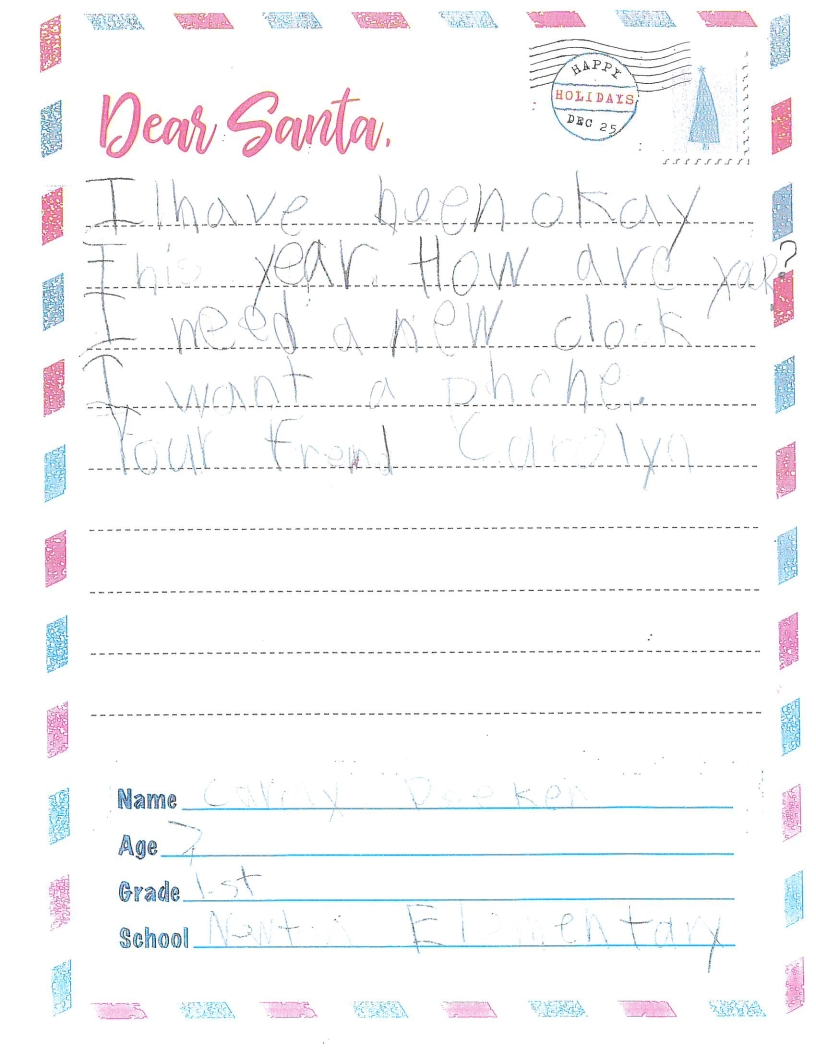 HAPPY
HOLIDAYS
DEC 25
Dear Santa,
I have been okay
This year. How are
I need a new clock
I want a phone.
Your Frend Carolyn
Name
Age 7
Grade 1st
School Elementary